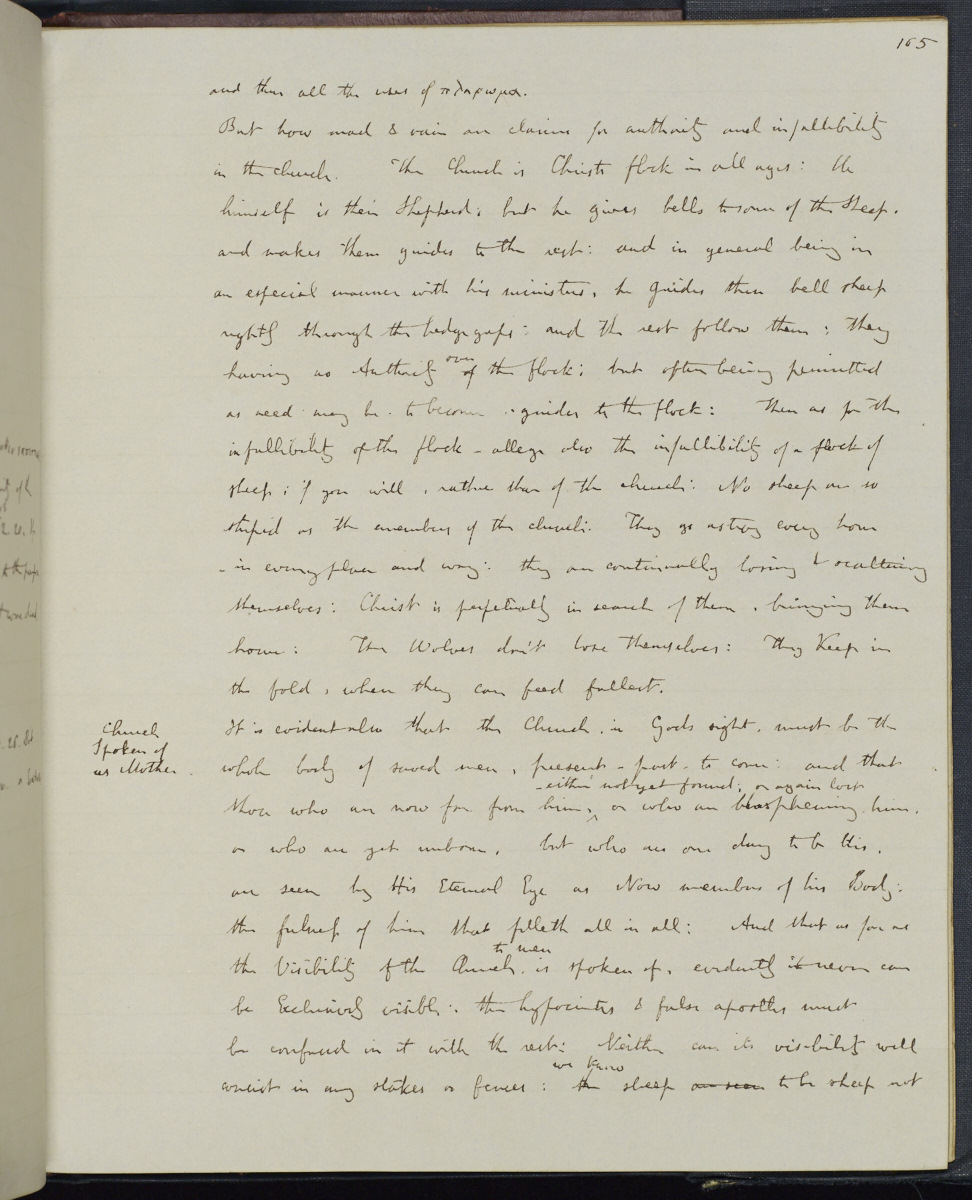 165
and then all the uses of πληρωμα.
But how mad & vain are claims for authority and infallibility
in the church. The Church is Christs flock in all ages: He
himself is their Shepherd; but he gives bells to some of the Sheep.
and makes them guides to the rest: and in general being in
an especial manner with his ministers, he guides these bell sheep
rightly through the hedge gaps: and the rest follow them: They
having no Authority over
of the flock; but often being permitted
as need may be. to become guides to the flock: Then as for the
infallibility of the flock - allege also the infallibility of a flock of
sheep; if you will, rather than of the church: No sheep are so
stupid as the members of the church. They go astray every hour
- in every place and way: they are continually losing & scattering
themselves: Christ is perpetually in search of them, bringing them
home: The Wolves don't lose themselves: They Keep in
the fold, where they can feed fullest.
Church
Spoken of
as Mother.
It is evident also that the Church, in Gods sight, must be the
whole body of saved men, present - past - to come: and that
- either not yet found; or again lost
those who are now far from him, or who are blaspheming him,
or who are yet unborn, but who are one day to be his,
are seen by His Eternal Eye as Now members of his Body:
the fulness of him that filleth all in all: And that as far as
to men
the Visibility of the Church, is spoken of, evidently it never can
be Exclusively visible: the hypocrites & false apostles must
be confused in it with the rest: Neither can its visibility well
we know
consist in any stakes or fences: the sheep are seen to be sheep not